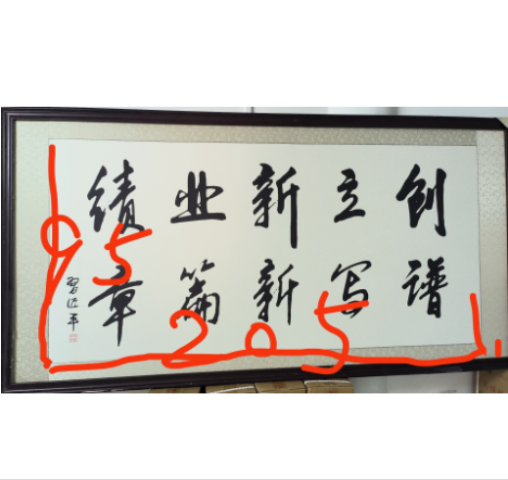 创谱
立写
新新
业篇
绩章
习近平
95
205